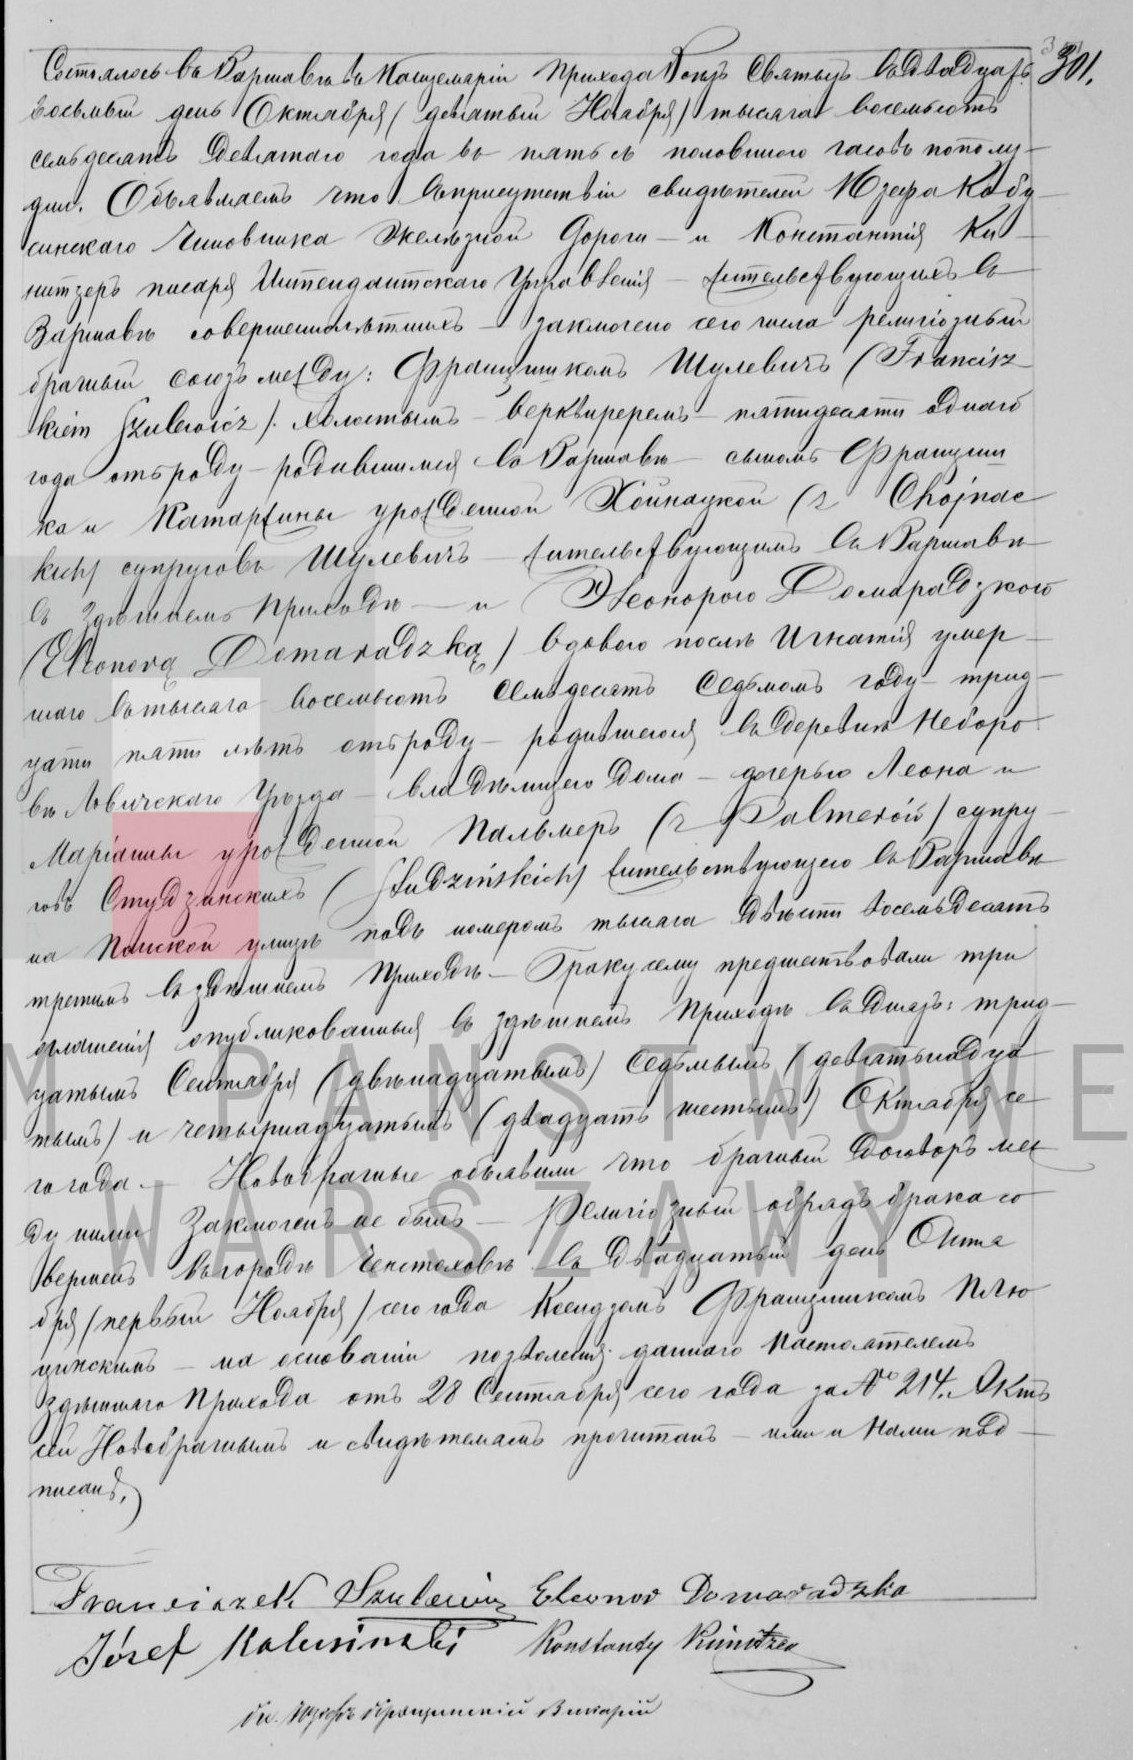 301.
Состоялось въ Варшавѣ въ Канцеляріи Прихода Всѣхъ Святыхъ въ двадцать
восьмый день Октября / девятый Ноября / тысяча восемьсотъ
семьдесятъ девятаго года въ пять съ половиною часовъ пополу-
дни. Объявляемъ что въ присутствіи свидѣтелей Юзефа Кобу-
синскаго чиновника Желѣзной Дороги — и Константія Ки-
нитзеръ писаря Интендантскаго Управленія — жительствующихъ въ
Варшавѣ совершеннолѣтнихъ — заключено сего числа религіозный
брачный союзъ между: Францишкомъ Шулевичъ (Francisz
kiem Szulewicz). холостымъ — — пятидесяти одного
года отъ роду — родившимся въ Варшавѣ — сыномъ Францишка
ка и Катаржины урожденной Хойнацкой (z Chojnac
kich) супруговъ Шулевичъ — жительствующимъ въ Варшавѣ
въ здѣшнемъ Приходѣ — и Элеонорою Домарадзкою
(Eleonorą Domaradzką) вдовою послѣ Игнатія умер-
шаго въ тысяча восемьсотъ семьдесятъ седьмомъ году — трид-
цати пяти лѣтъ отъ роду — родившеюся въ деревнѣ Неборо
вѣ Ловичскаго Уѣзда — владѣлицею дома — дочерью Леона и
Маріанны урожденной Пальмеръ (z Palmerów) супру-
говъ Студзинскихъ (Studzińskich) жительствующею въ Варшавѣ
на Панской улицѣ подъ номеромъ тысяча двѣсти восемьдесятъ
третимъ въ здѣшнемъ Приходѣ. — Браку сему предшествовали три
оглашенія опубликованныя въ здѣшнемъ Приходѣ въ дняхъ: трид-
цатымъ Сентября (двѣнадцатымъ) седьмымъ (девятьнадца
тымъ) и четырнадцатымъ (двадцать шестымъ) Октября се
го года. — Новобрачные объявили что брачный договоръ меж
ду ними заключенъ не былъ — Религіозный обрядъ брака со
вершенъ въ городѣ Ченстоховѣ въ двадцатый день Октя
бря / первый Ноября / сего года Ксендзомъ Францишкомъ Плю
цинскимъ — на основаніи позволенія даннаго Настоятелемъ
здѣшняго Прихода отъ 28 Сентября сего года за № 214. Актъ
сей Новобрачнымъ и свидѣтелямъ прочитанъ — ими и Нами под-
писанъ.
Franciszek Szulewicz Eleonor Domaradzka
Józef Kobusinski Konstanty Kinitzer
Викарій
M PAŃSTWOWE
WARSZAWY